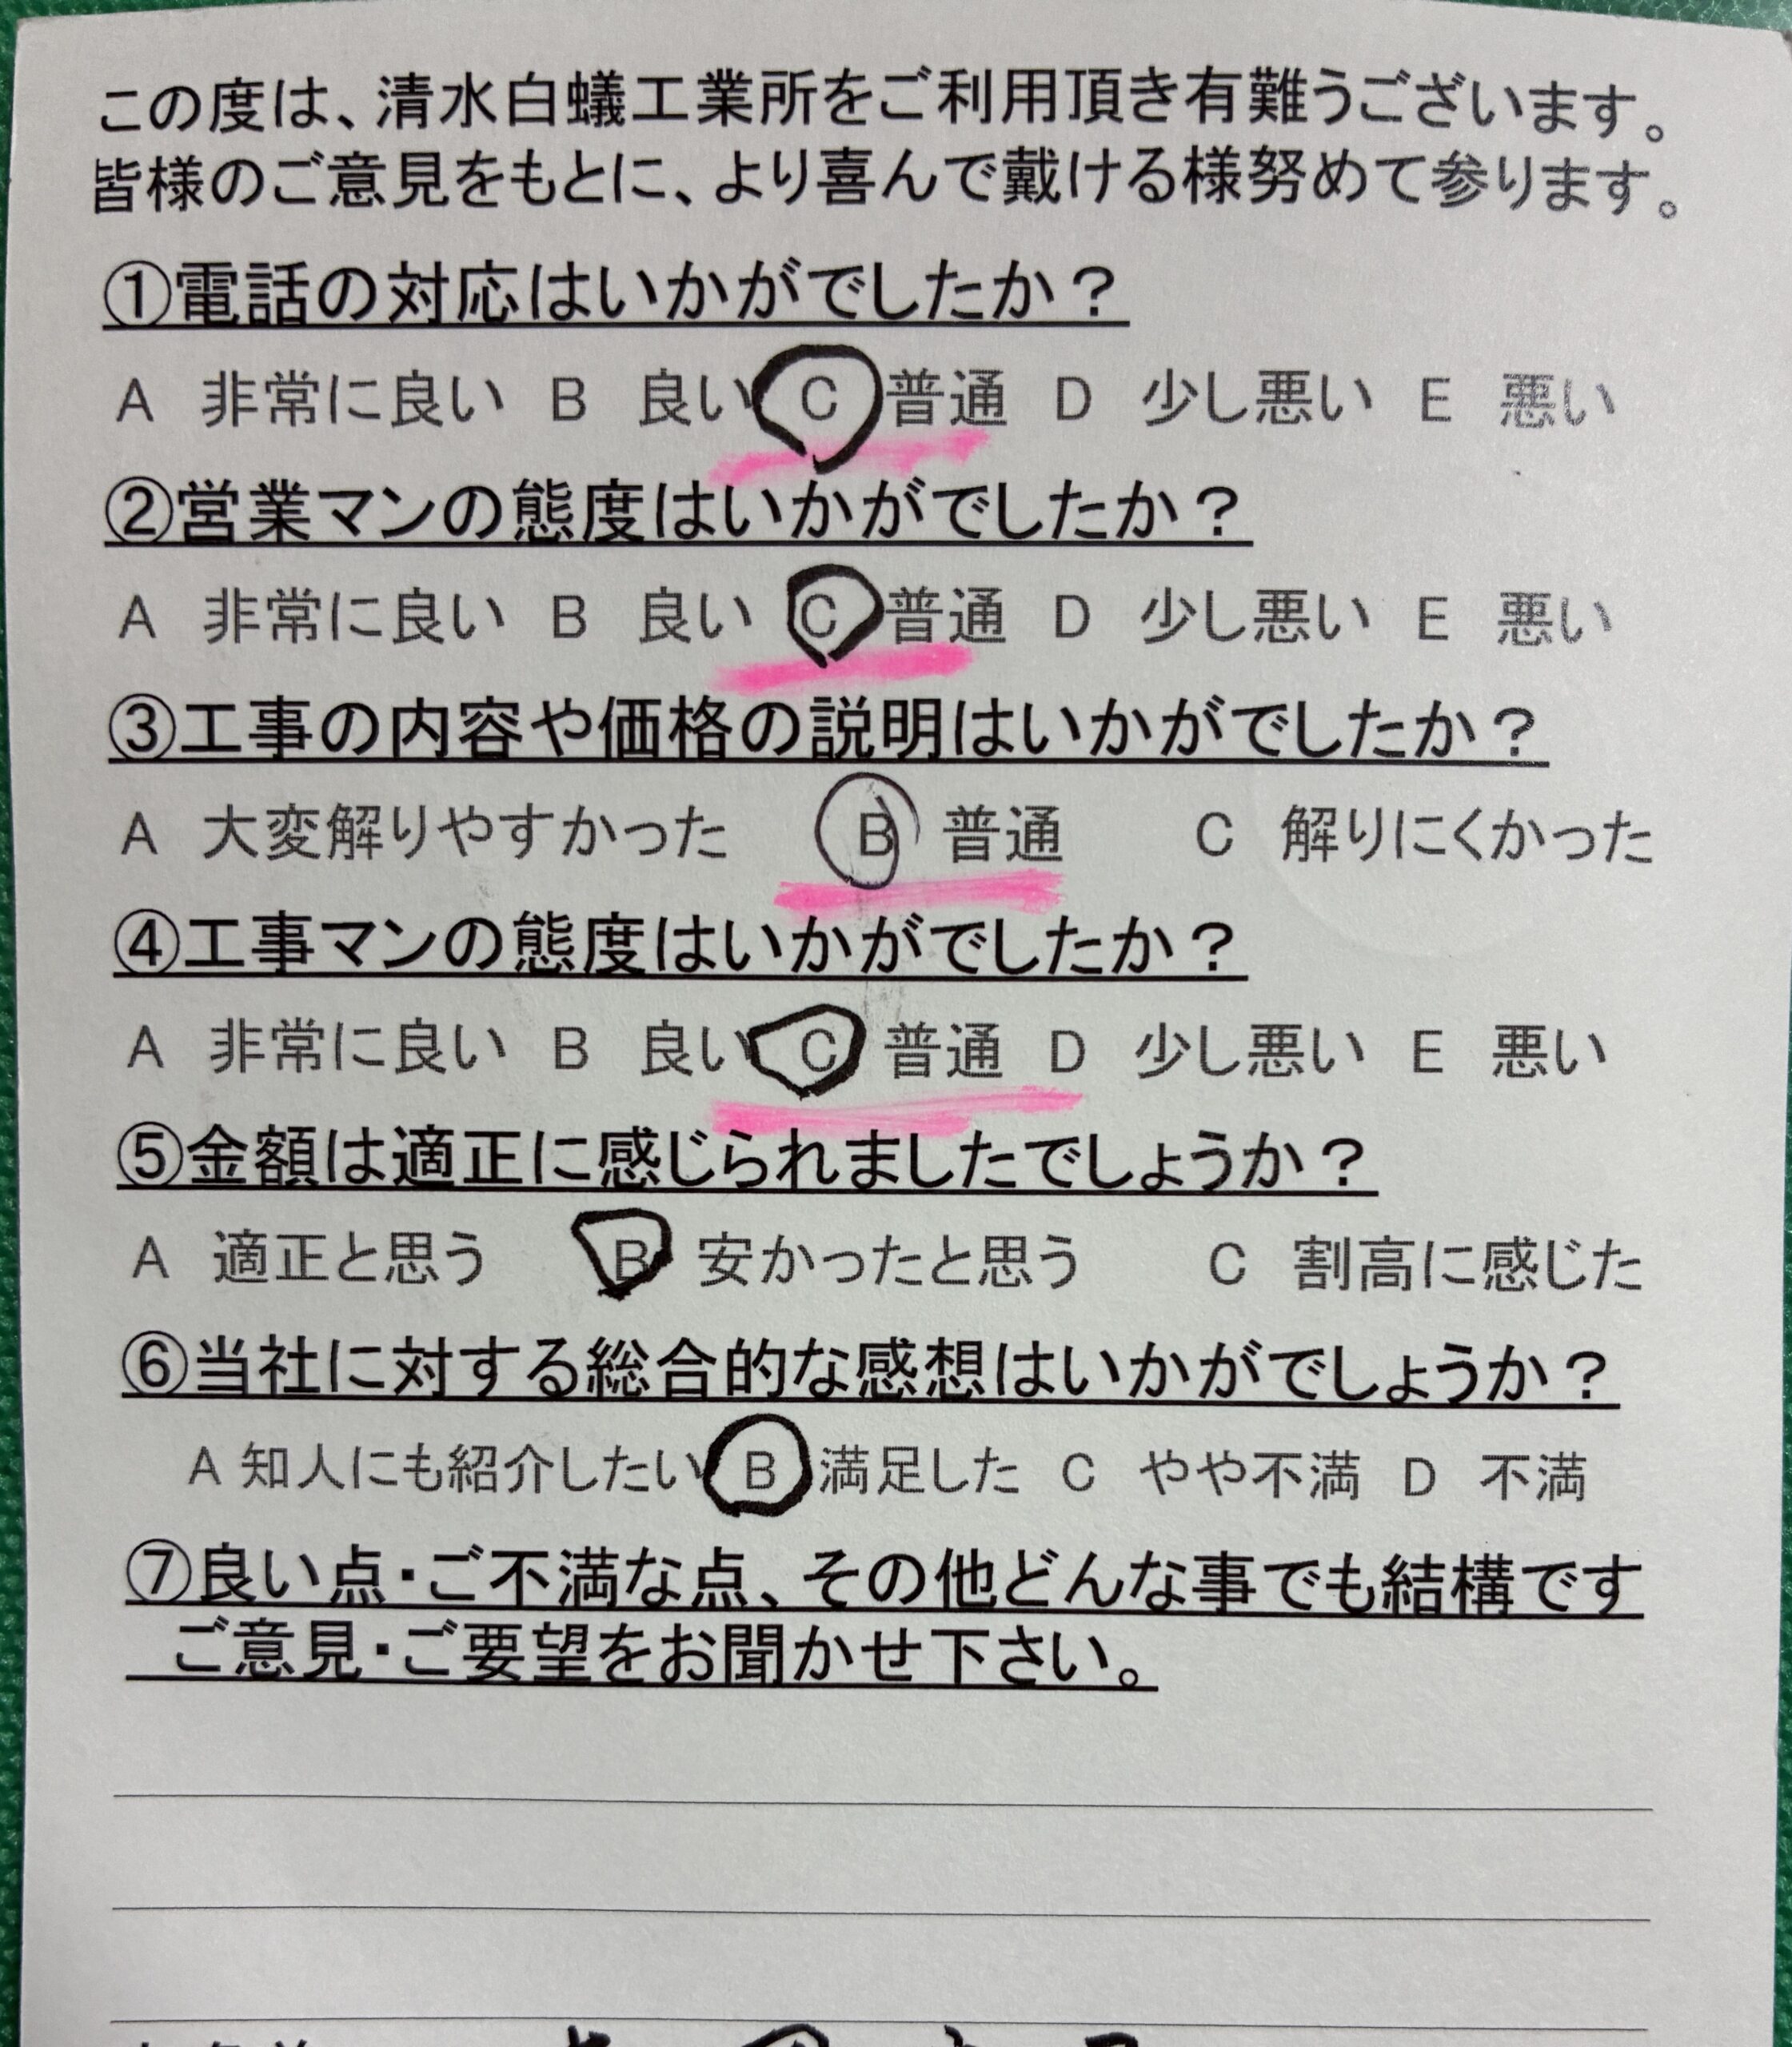 この度は、清水白蟻工業所をご利用頂き有難うございます。
皆様のご意見をもとに、より喜んで戴ける様努めて参ります。
①電話の対応はいかがでしたか？
A 非常に良い B 良い C 普通 D 少し悪い E 悪い
②営業マンの態度はいかがでしたか？
A 非常に良い B 良い C 普通 D 少し悪い E 悪い
③工事の内容や価格の説明はいかがでしたか？
A 大変解りやすかった B 普通 C 解りにくかった
④工事マンの態度はいかがでしたか？
A 非常に良い B 良い C 普通 D 少し悪い E 悪い
⑤金額は適正に感じられましたでしょうか？
A 適正と思う B 安かったと思う C 割高に感じた
⑥当社に対する総合的な感想はいかがでしょうか？
A 知人にも紹介したい B 満足した C やや不満 D 不満
⑦良い点・ご不満な点、その他どんな事でも結構です
ご意見・ご要望をお聞かせ下さい。